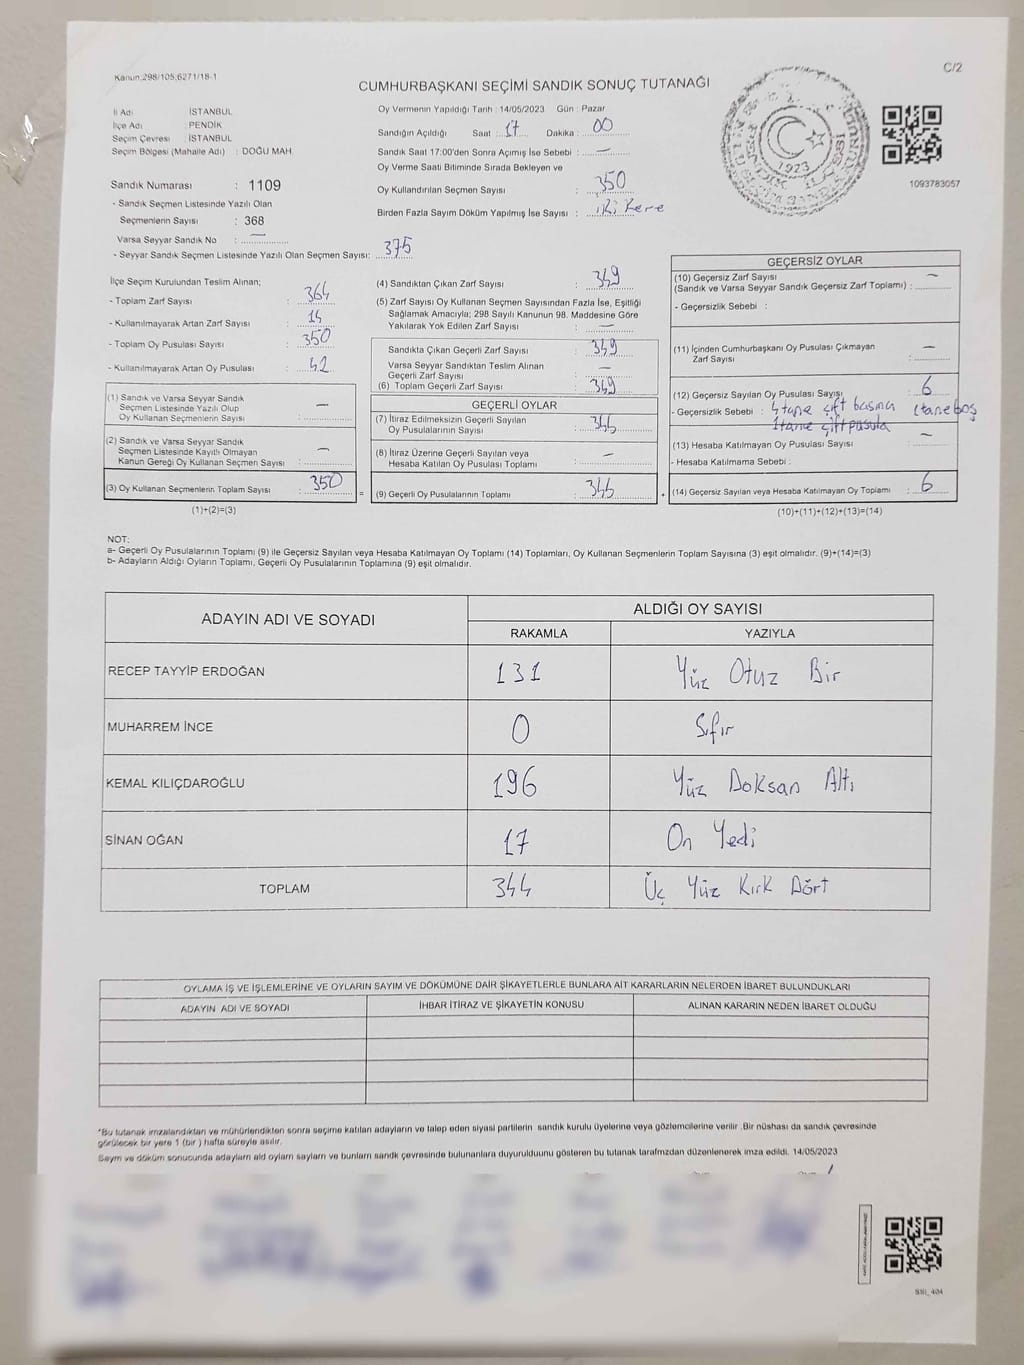 Kanun:298/105;6271/18-1
C/2
CUMHURBAŞKANI SEÇİMİ SANDIK SONUÇ TUTANAĞI
İl Adı : İSTANBUL
İlçe Adı : PENDİK
Seçim Çevresi : İSTANBUL
Seçim Bölgesi (Mahalle Adı) : DOĞU MAH.
Sandık Numarası : 1109
- Sandık Seçmen Listesinde Yazılı Olan
Seçmenlerin Sayısı : 368
Varsa Seyyar Sandık No : —
- Seyyar Sandık Seçmen Listesinde Yazılı Olan Seçmen Sayısı: 375
Oy Vermenin Yapıldığı Tarih : 14/05/2023 Gün : Pazar
Sandığın Açıldığı Saat 17 Dakika : 00
Sandık Saat 17:00'den Sonra Açımış İse Sebebi : —
Oy Verme Saati Bitiminde Sırada Bekleyen ve
Oy Kullandırılan Seçmen Sayısı : 350
Birden Fazla Sayım Döküm Yapılmış İse Sayısı : iki kere
1923
1093783057
İlçe Seçim Kurulundan Teslim Alınan;
- Toplam Zarf Sayısı : 364
- Kullanılmayarak Artan Zarf Sayısı : 14
- Toplam Oy Pusulası Sayısı : 350
- Kullanılmayarak Artan Oy Pusulası : 42
(1) Sandık ve Varsa Seyyar Sandık
Seçmen Listesinde Yazılı Olup
Oy Kullanan Seçmenlerin Sayısı : —
(2) Sandık ve Varsa Seyyar Sandık
Seçmen Listesinde Kayıtlı Olmayan
Kanun Gereği Oy Kullanan Seçmen Sayısı : —
(3) Oy Kullanan Seçmenlerin Toplam Sayısı : 350
(1)+(2)=(3)
(4) Sandıktan Çıkan Zarf Sayısı : 349
(5) Zarf Sayısı Oy Kullanan Seçmen Sayısından Fazla İse, Eşitliği
Sağlamak Amacıyla; 298 Sayılı Kanunun 98. Maddesine Göre
Yakılarak Yok Edilen Zarf Sayısı : —
Sandıkta Çıkan Geçerli Zarf Sayısı : 349
Varsa Seyyar Sandıktan Teslim Alınan
Geçerli Zarf Sayısı : —
(6) Toplam Geçerli Zarf Sayısı : 349
GEÇERLİ OYLAR
(7) İtiraz Edilmeksizin Geçerli Sayılan
Oy Pusulalarının Sayısı : 344
(8) İtiraz Üzerine Geçerli Sayılan veya
Hesaba Katılan Oy Pusulası Toplamı : —
= (9) Geçerli Oy Pusulalarının Toplamı : 344 +
GEÇERSİZ OYLAR
(10) Geçersiz Zarf Sayısı —
(Sandık ve Varsa Seyyar Sandık Geçersiz Zarf Toplamı) :
- Geçersizlik Sebebi :
(11) İçinden Cumhurbaşkanı Oy Pusulası Çıkmayan
Zarf Sayısı : —
(12) Geçersiz Sayılan Oy Pusulası Sayısı : 6
- Geçersizlik Sebebi : 4 tane çift basma 1 tane boş
1 tane çift pusula
(13) Hesaba Katılmayan Oy Pusulası Sayısı : —
- Hesaba Katılmama Sebebi :
(14) Geçersiz Sayılan veya Hesaba Katılmayan Oy Toplamı : 6
(10)+(11)+(12)+(13)=(14)
NOT:
a- Geçerli Oy Pusulalarının Toplamı (9) ile Geçersiz Sayılan veya Hesaba Katılmayan Oy Toplamı (14) Toplamları, Oy Kullanan Seçmenlerin Toplam Sayısına (3) eşit olmalıdır. (9)+(14)=(3)
b- Adayların Aldığı Oyların Toplamı, Geçerli Oy Pusulalarının Toplamına (9) eşit olmalıdır.
ADAYIN ADI VE SOYADI ALDIĞI OY SAYISI
RAKAMLA YAZIYLA
RECEP TAYYİP ERDOĞAN 131 Yüz Otuz Bir
MUHARREM İNCE 0 Sıfır
KEMAL KILIÇDAROĞLU 196 Yüz Doksan Altı
SİNAN OĞAN 17 On Yedi
TOPLAM 344 Üç Yüz Kırk Dört
OYLAMA İŞ VE İŞLEMLERİNE VE OYLARIN SAYIM VE DÖKÜMÜNE DAİR ŞİKAYETLERLE BUNLARA AİT KARARLARIN NELERDEN İBARET BULUNDUKLARI
ADAYIN ADI VE SOYADI İHBAR İTİRAZ VE ŞİKAYETİN KONUSU ALINAN KARARIN NEDEN İBARET OLDUĞU
*Bu tutanak imzalandıktan ve mühürlendikten sonra seçime katılan adayların ve talep eden siyasi partilerin sandık kurulu üyelerine veya gözlemcilerine verilir .Bir nüshası da sandık çevresinde
görülecek bir yere 1 (bir ) hafta süreyle asılır.
Sayım ve döküm sonucunda adayların ald oyların sayların ve bunların sandk çevresinde bulunanlara duyurulduunu gösteren bu tutanak tarafmzdan düzenlenerek imza edildi. 14/05/2023